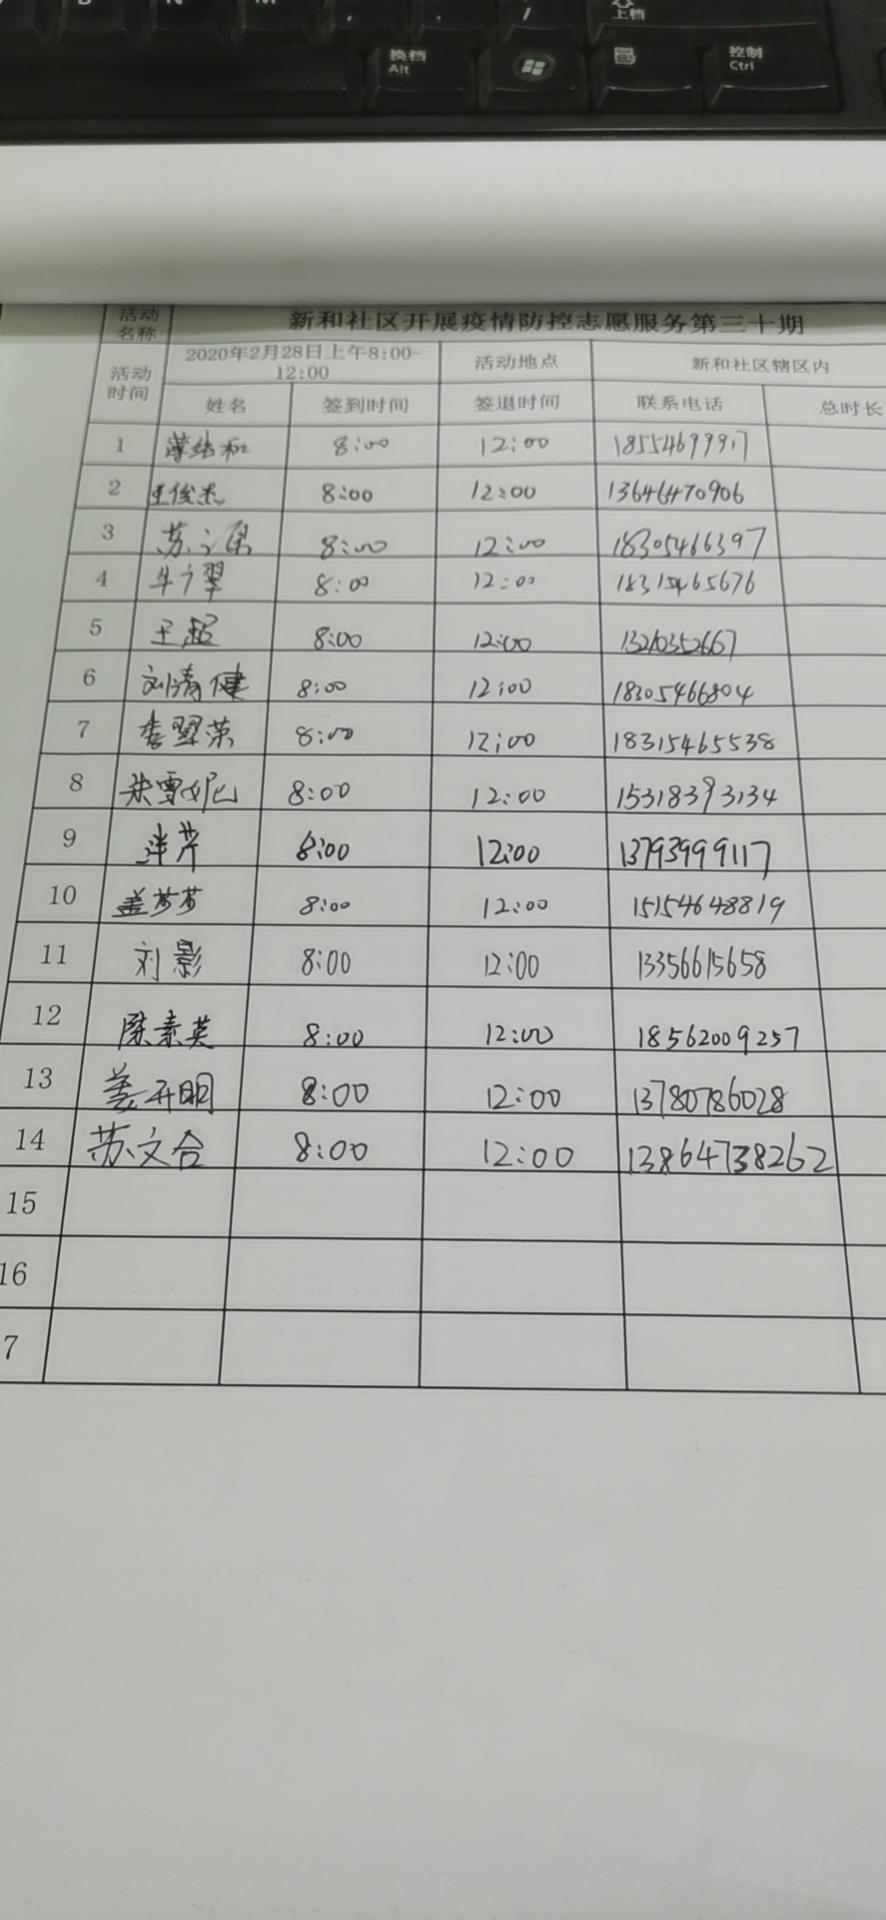 上档
换档
Alt
控制
Ctrl
活动名称 新和社区开展疫情防控志愿服务第三十期
活动时间 2020年2月28日上午8:00-12:00 活动地点 新和社区辖区内
姓名 签到时间 签退时间 联系电话 总时长
1 8:00 12:00
2 王俊杰 8:00 12:00 13646470906
3 8:00 12:00 18305466397
4 8:00 12:00 18315465676
5 王超 8:00 12:00
6 刘清健 8:00 12:00 18305466804
7 李翠荣 8:00 12:00 18315465538
8 朱雪妮 8:00 12:00 15318393134
9 8:00 12:00 13793999117
10 盖芳芳 8:00 12:00 15154648819
11 刘影 8:00 12:00 13356615658
12 陈素英 8:00 12:00 18562009257
13 姜开明 8:00 12:00 13780786028
14 苏文合 8:00 12:00 13864738262
15
16
7